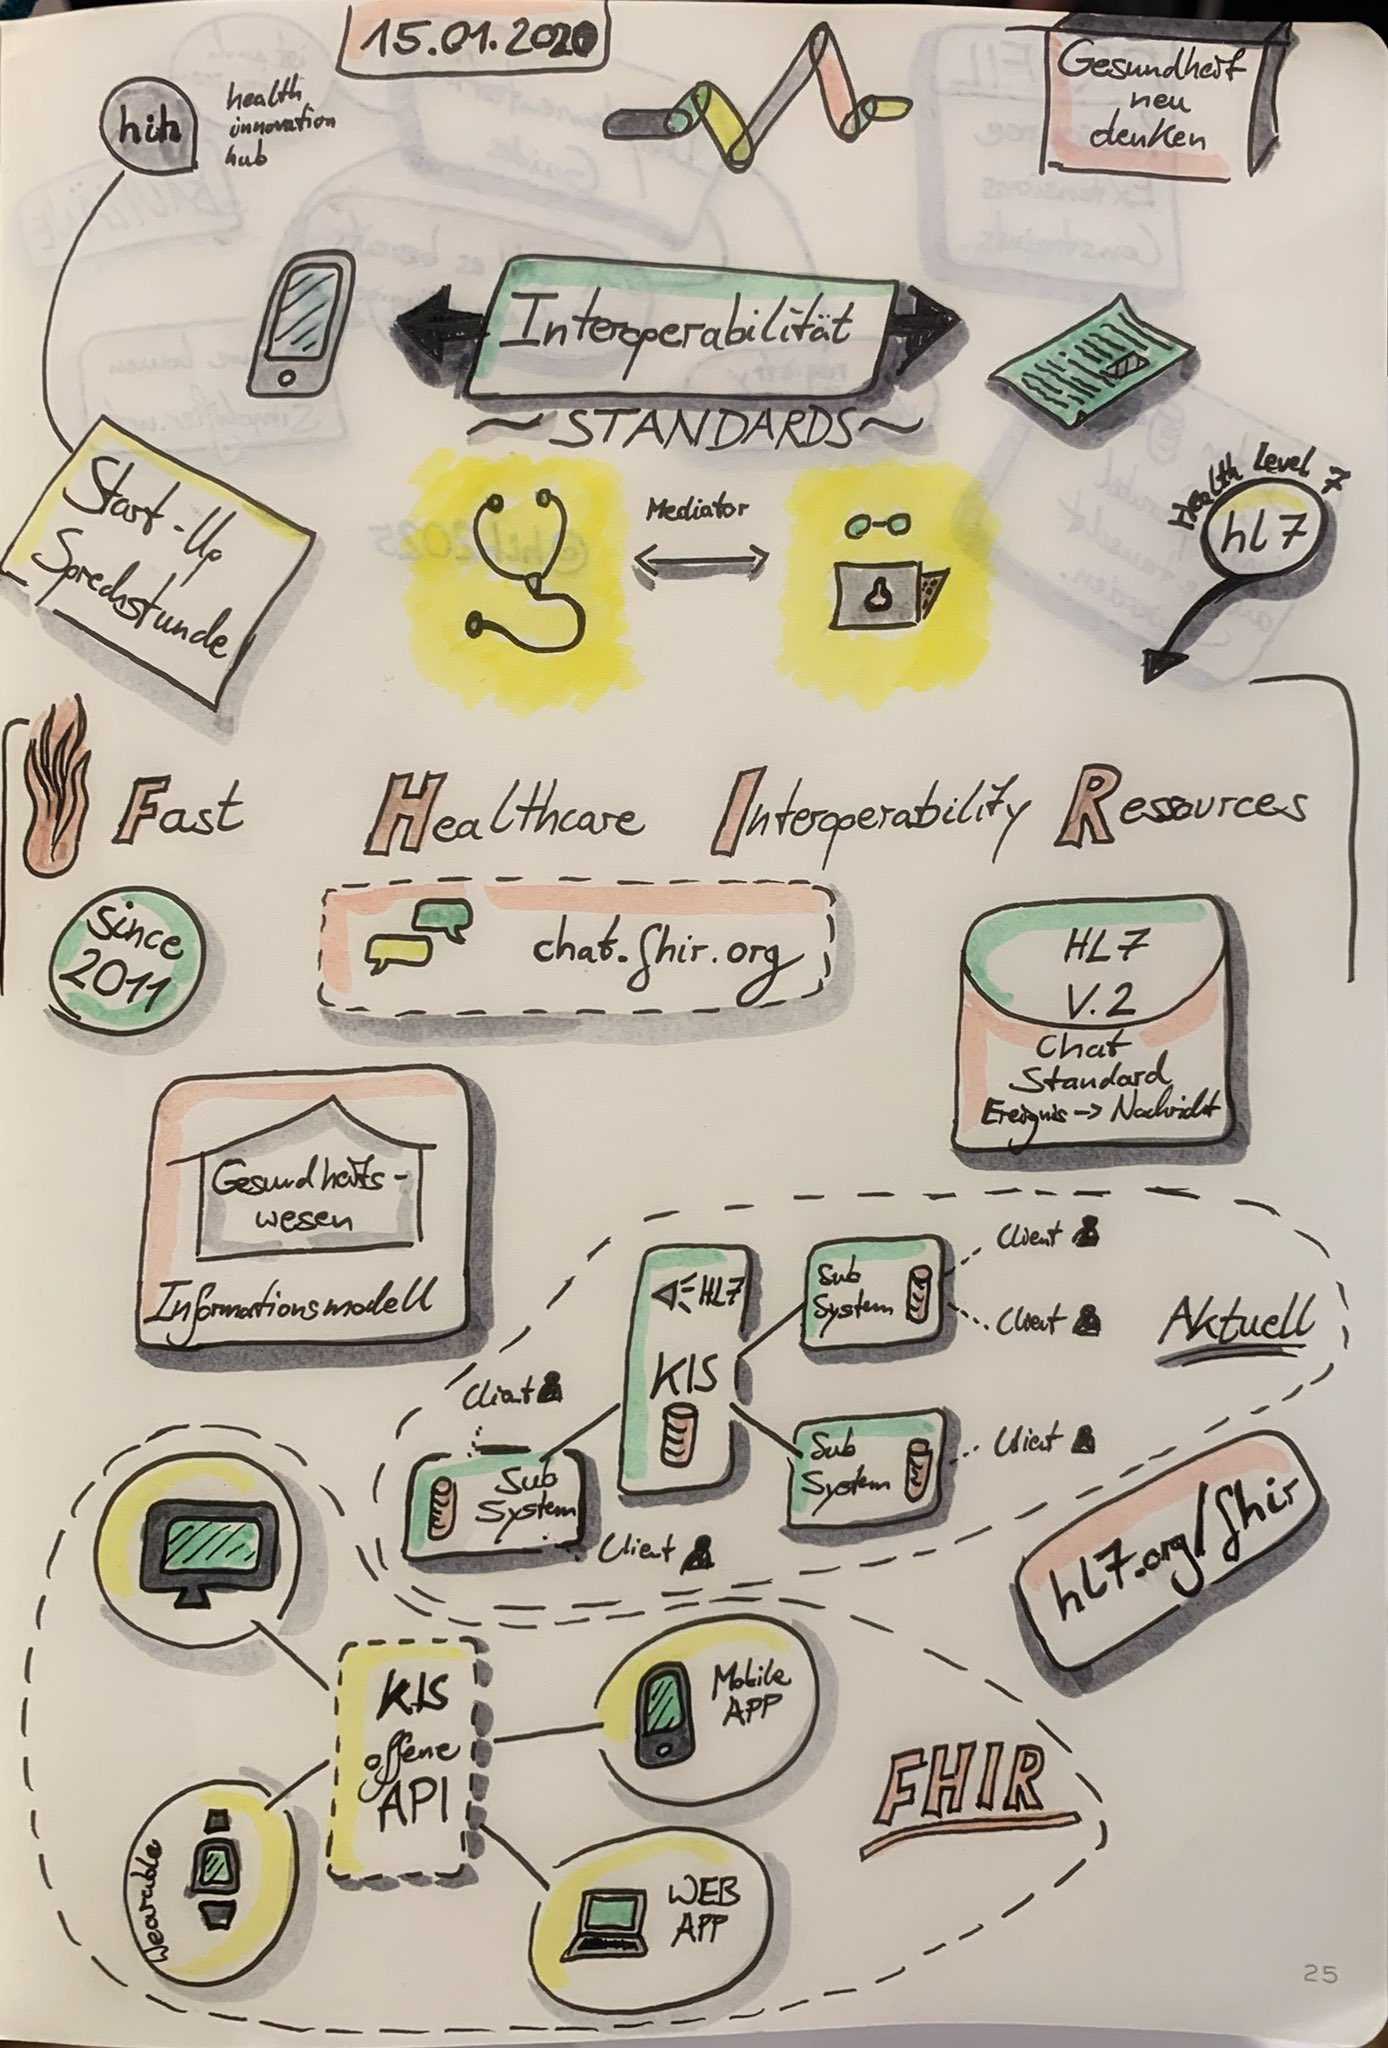 15.01.2020
hih
health
innovation
hub
Gesundheit
neu
denken
Interoperabilität
~ STANDARDS ~
Start-Up
Sprechstunde
Mediator
Health Level 7
hl7
Fast Healthcare Interoperability Ressources
since
2011
chat.fhir.org
HL7
V.2
Chat
Standard
Ereignis -> Nachricht
Gesundheits-
wesen
Informationsmodell
HL7
KIS
Sub
System
Client
Client
Aktuell
Client
Sub
System
Client
Sub
System
Client
hl7.org/fhir
KIS
offene
API
Mobile
APP
FHIR
Wearable
WEB
APP
25